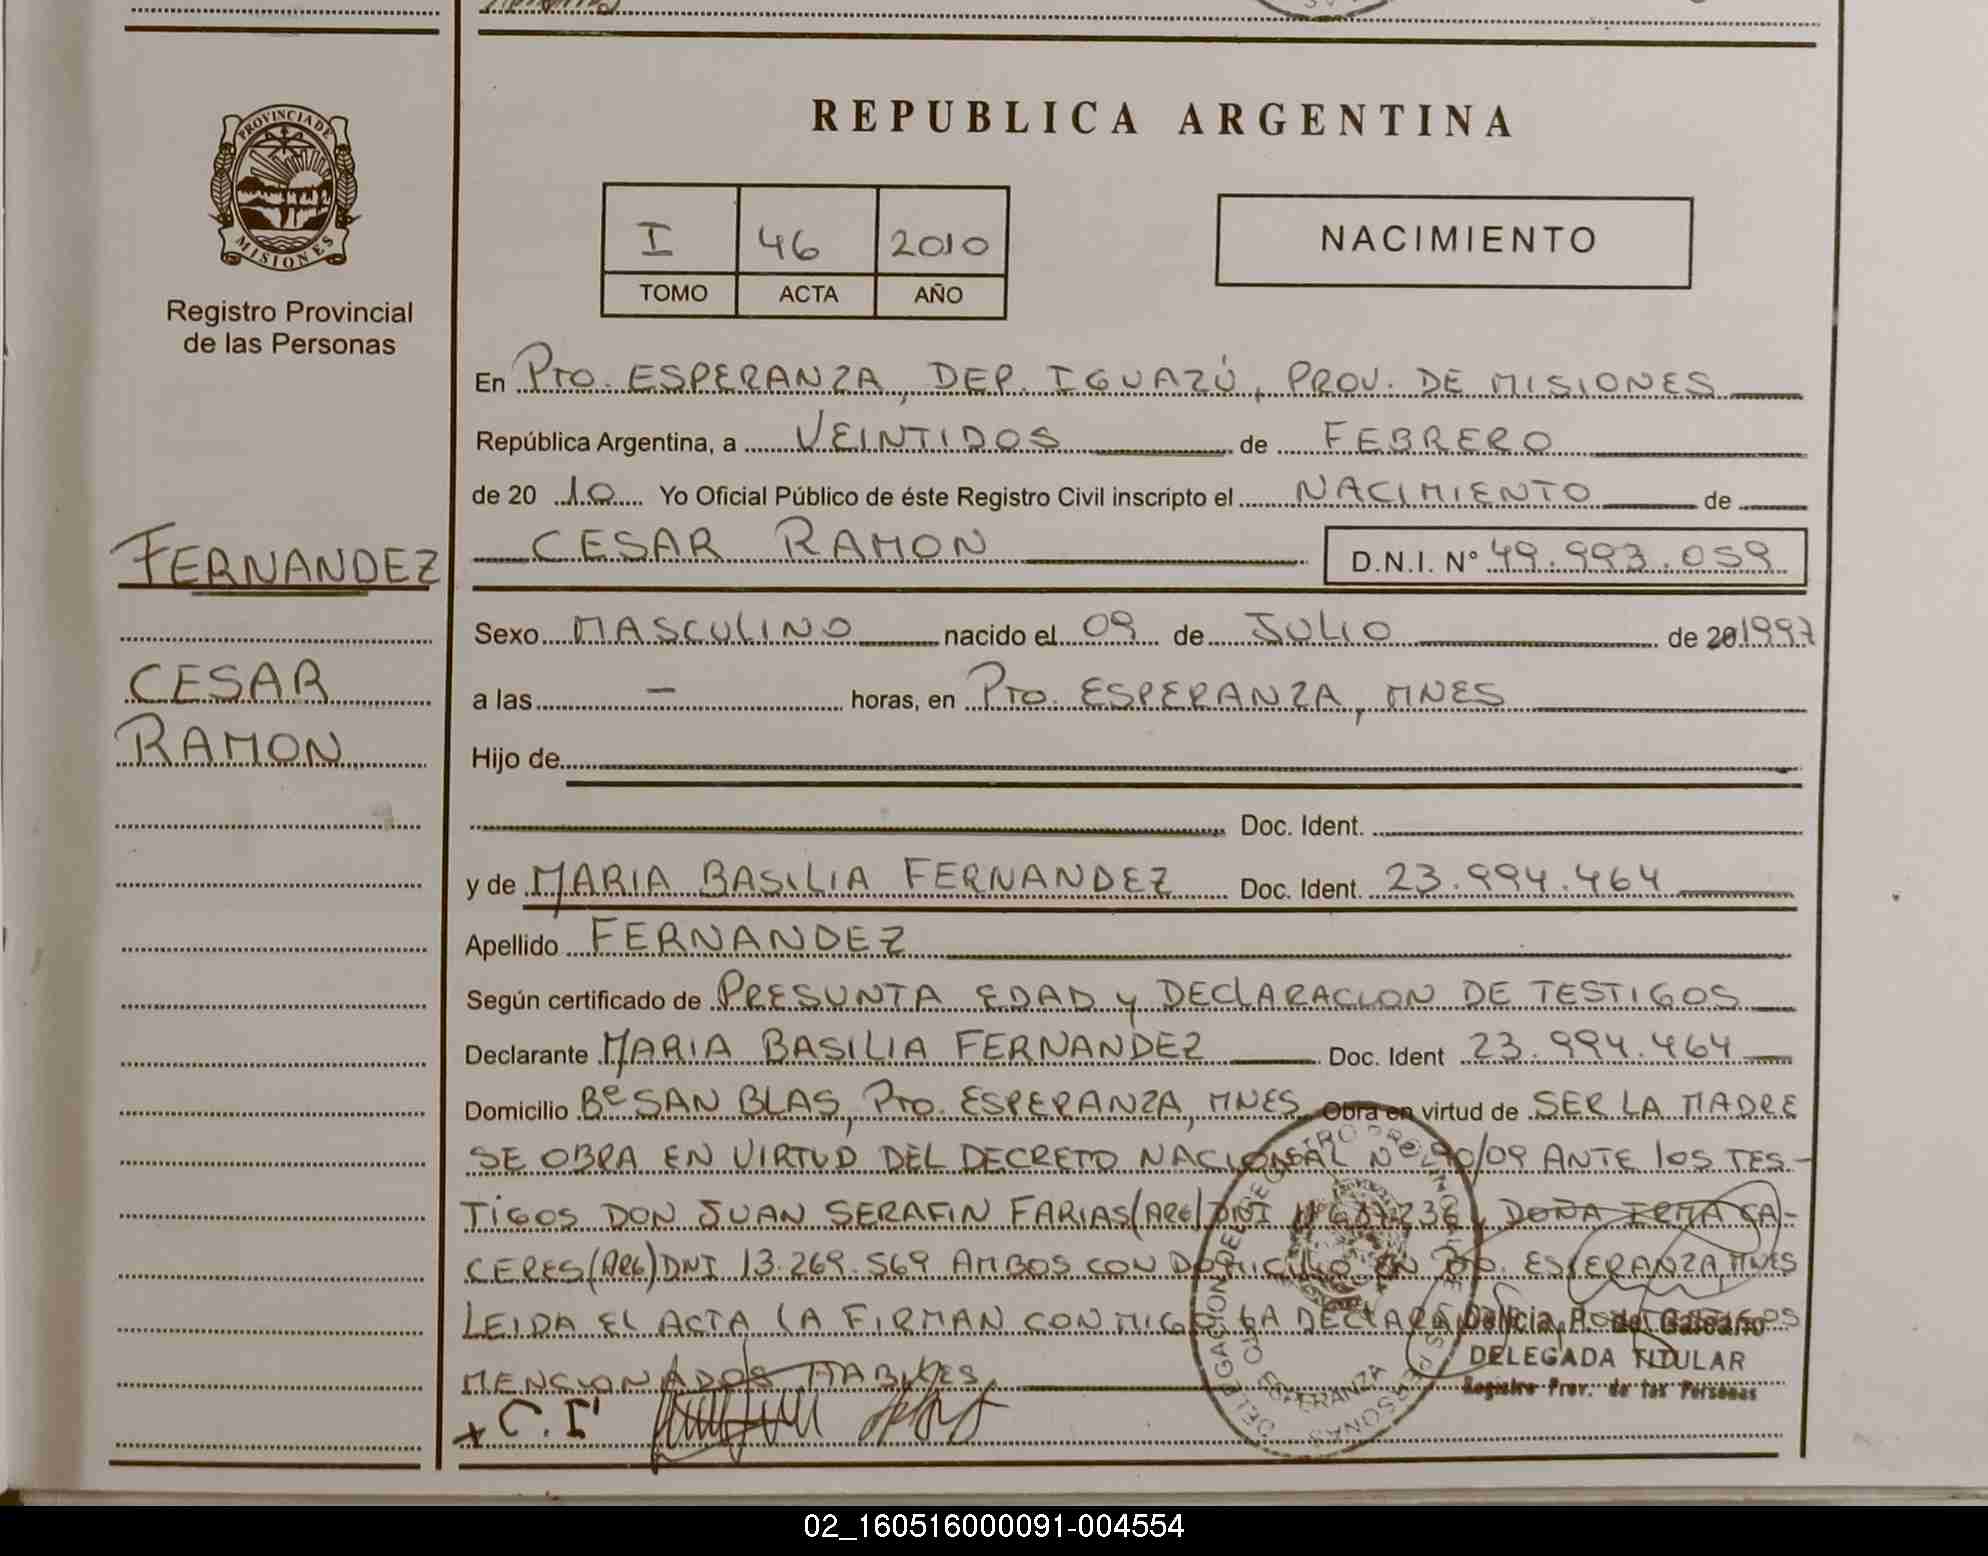 PROVINCIA DE
MISIONES
Registro Provincial
de las Personas
FERNANDEZ
CESAR
RAMON
REPUBLICA ARGENTINA
I 46 2010
TOMO ACTA AÑO
NACIMIENTO
En Pto. ESPERANZA, DEP. IGUAZÚ, PROV. DE MISIONES
República Argentina, a VEINTIDOS de FEBRERO
de 20 10 Yo Oficial Público de éste Registro Civil inscripto el NACIMIENTO de
CESAR RAMON D.N.I. N° 49.993.059
Sexo MASCULINO nacido el 09 de JULIO de 20 1997
a las — horas, en Pto. ESPERANZA, MNES
Hijo de
Doc. Ident.
y de MARIA BASILIA FERNANDEZ Doc. Ident. 23.994.464
Apellido FERNANDEZ
Según certificado de PRESUNTA EDAD y DECLARACION DE TESTIGOS
Declarante MARIA BASILIA FERNANDEZ Doc. Ident 23.994.464
Domicilio Bº SAN BLAS, Pto. ESPERANZA, MNES Obra en virtud de SER LA MADRE
SE OBRA EN VIRTUD DEL DECRETO NACIONAL Nº 90/09 ANTE los TES-
TIGOS DON JUAN SERAFIN FARIAS (ARG) DNI DOÑA IRMA CA-
CERES (ARG) DNI 13.269.569 AMBOS CON DOMICILIO EN Pto. ESPERANZA, MNES
LEIDA EL ACTA LA FIRMAN CONMIGO LA
MENCIONADOS HABILES
C.I
DELEGADA TITULAR
Registro Prov. de las Personas
02_160516000091-004554